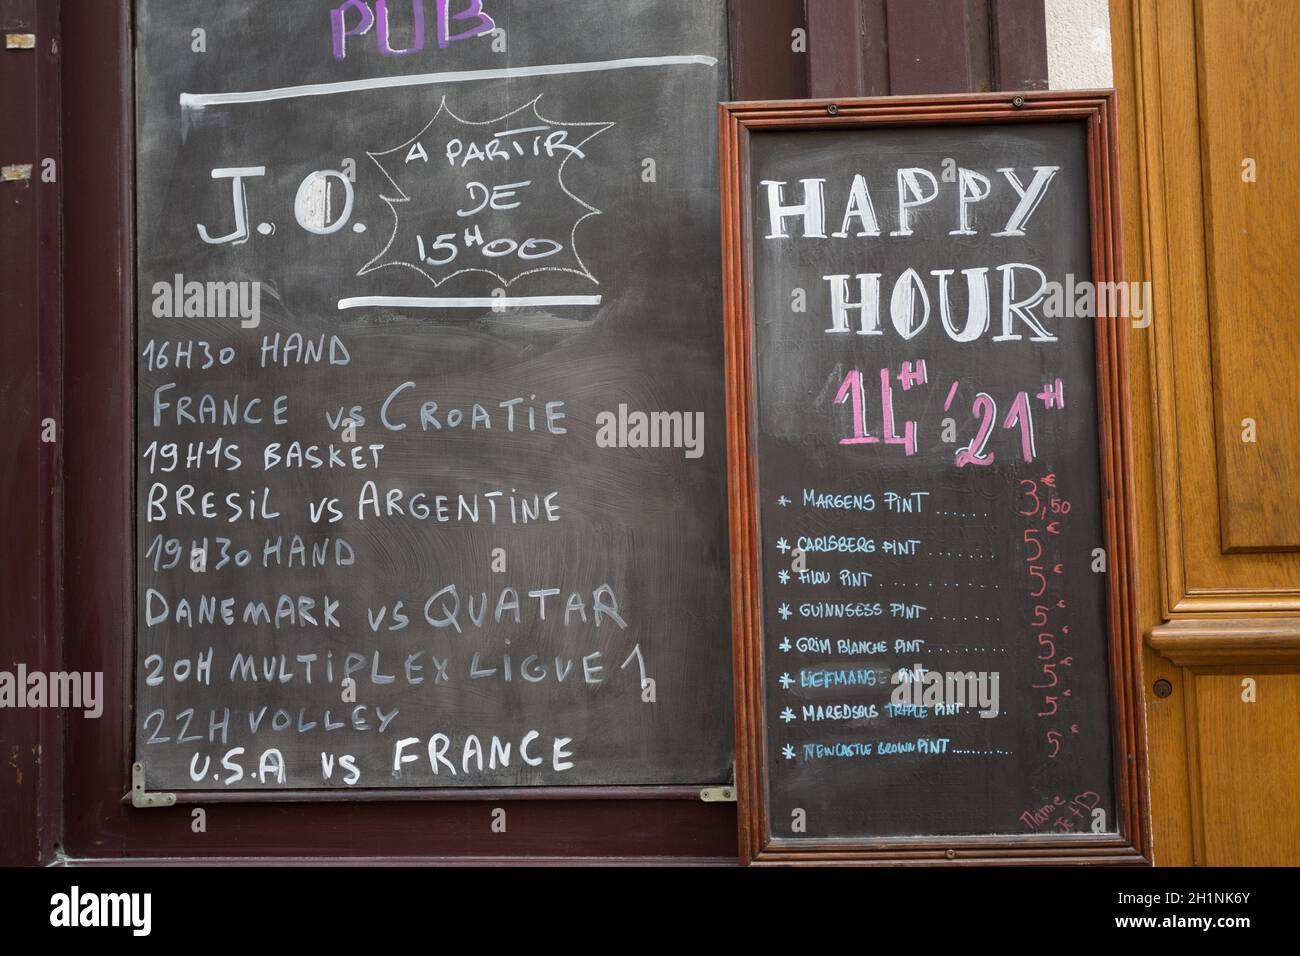 PUB
J.O.
A PARTIR
DE
15H00
16H30 HAND
FRANCE vs CROATIE
19H15 BASKET
BRESIL vs ARGENTINE
19H30 HAND
DANEMARK vs QUATAR
20H MULTIPLEX LIGUE 1
22H VOLLEY
U.S.A vs FRANCE
HAPPY
HOUR
14H ' 21H
* MARGENS PINT ...... 3,50€
* CARLSBERG PINT ....... 5€
* FILOU PINT .......... 5€
* GUINNSESS PINT ........ 5€
* GRIM BLANCHE PINT ......... 5€
* LIEFMANS PINT ........ 5€
* MAREDSOUS TRIPLE PINT..... 5€
* NEWCASTLE BROWN PINT ............ 5€
Mamie
Je t'♡
alamy
Image ID: 2H1NK6Y
www.alamy.com